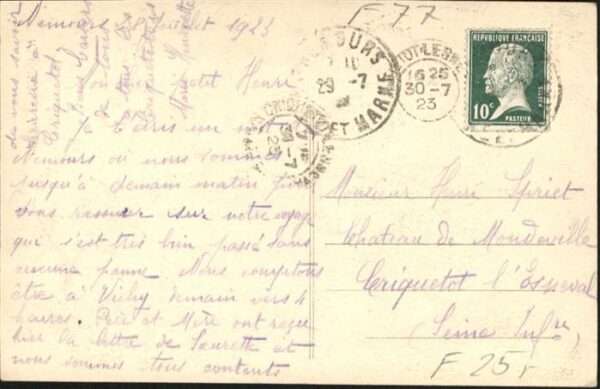 Nemours 28 Juillet 1923
Mon cher petit Henri
Je t'écris un mot
Nemours où nous sommes
jusqu'à demain matin pour
vous rassurer sur notre voyage
qui s'est très bien passé sans
aucune panne. Nous comptons
être à Vichy demain vers 4
heures. Père et Mère ont reçu
hier la lettre de Saurette et
nous sommes tous contents
de vous savoir
à
Criquetot
de tous
F 77
NEMOURS
29 -7
ET MARNE
16 25
30 -7
23
REPUBLIQUE FRANÇAISE
10c
POSTES
PASTEUR
Monsieur Henri
Chateau de Mondeville
Criquetot l'Esneval
Seine Infre
F 25,-